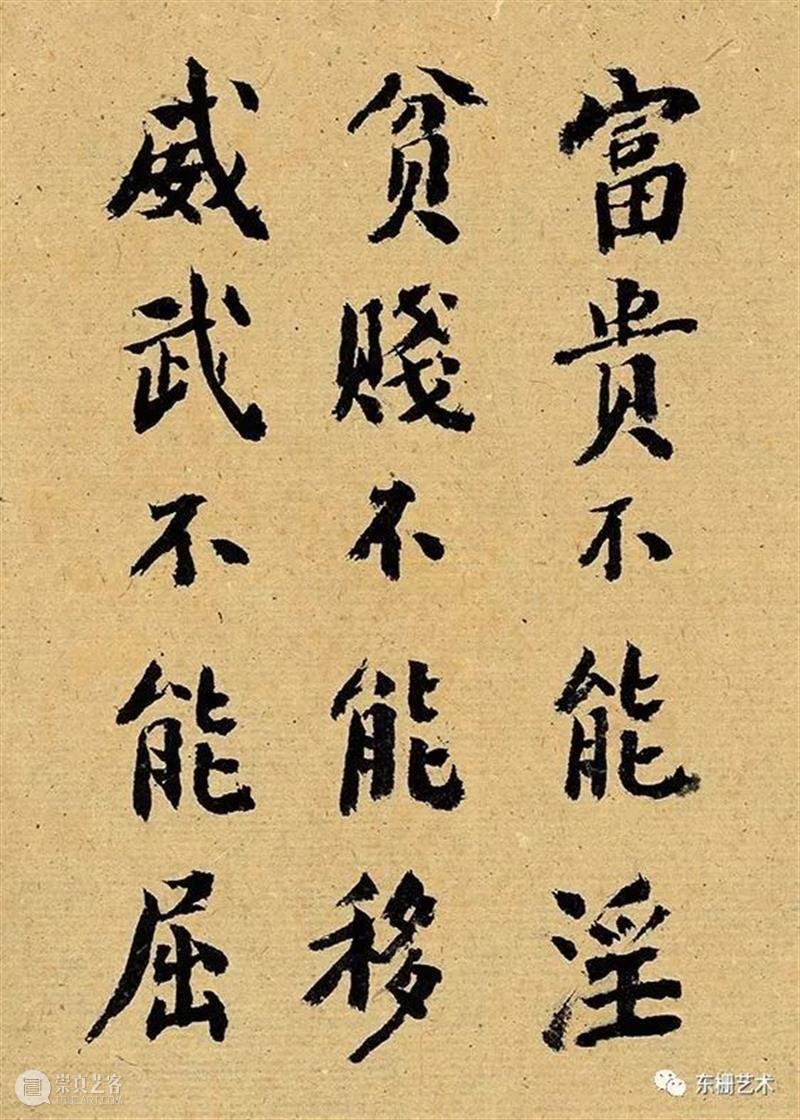 富貴不能淫
貧賤不能移
威武不能屈
崇真艺客
东栅艺术